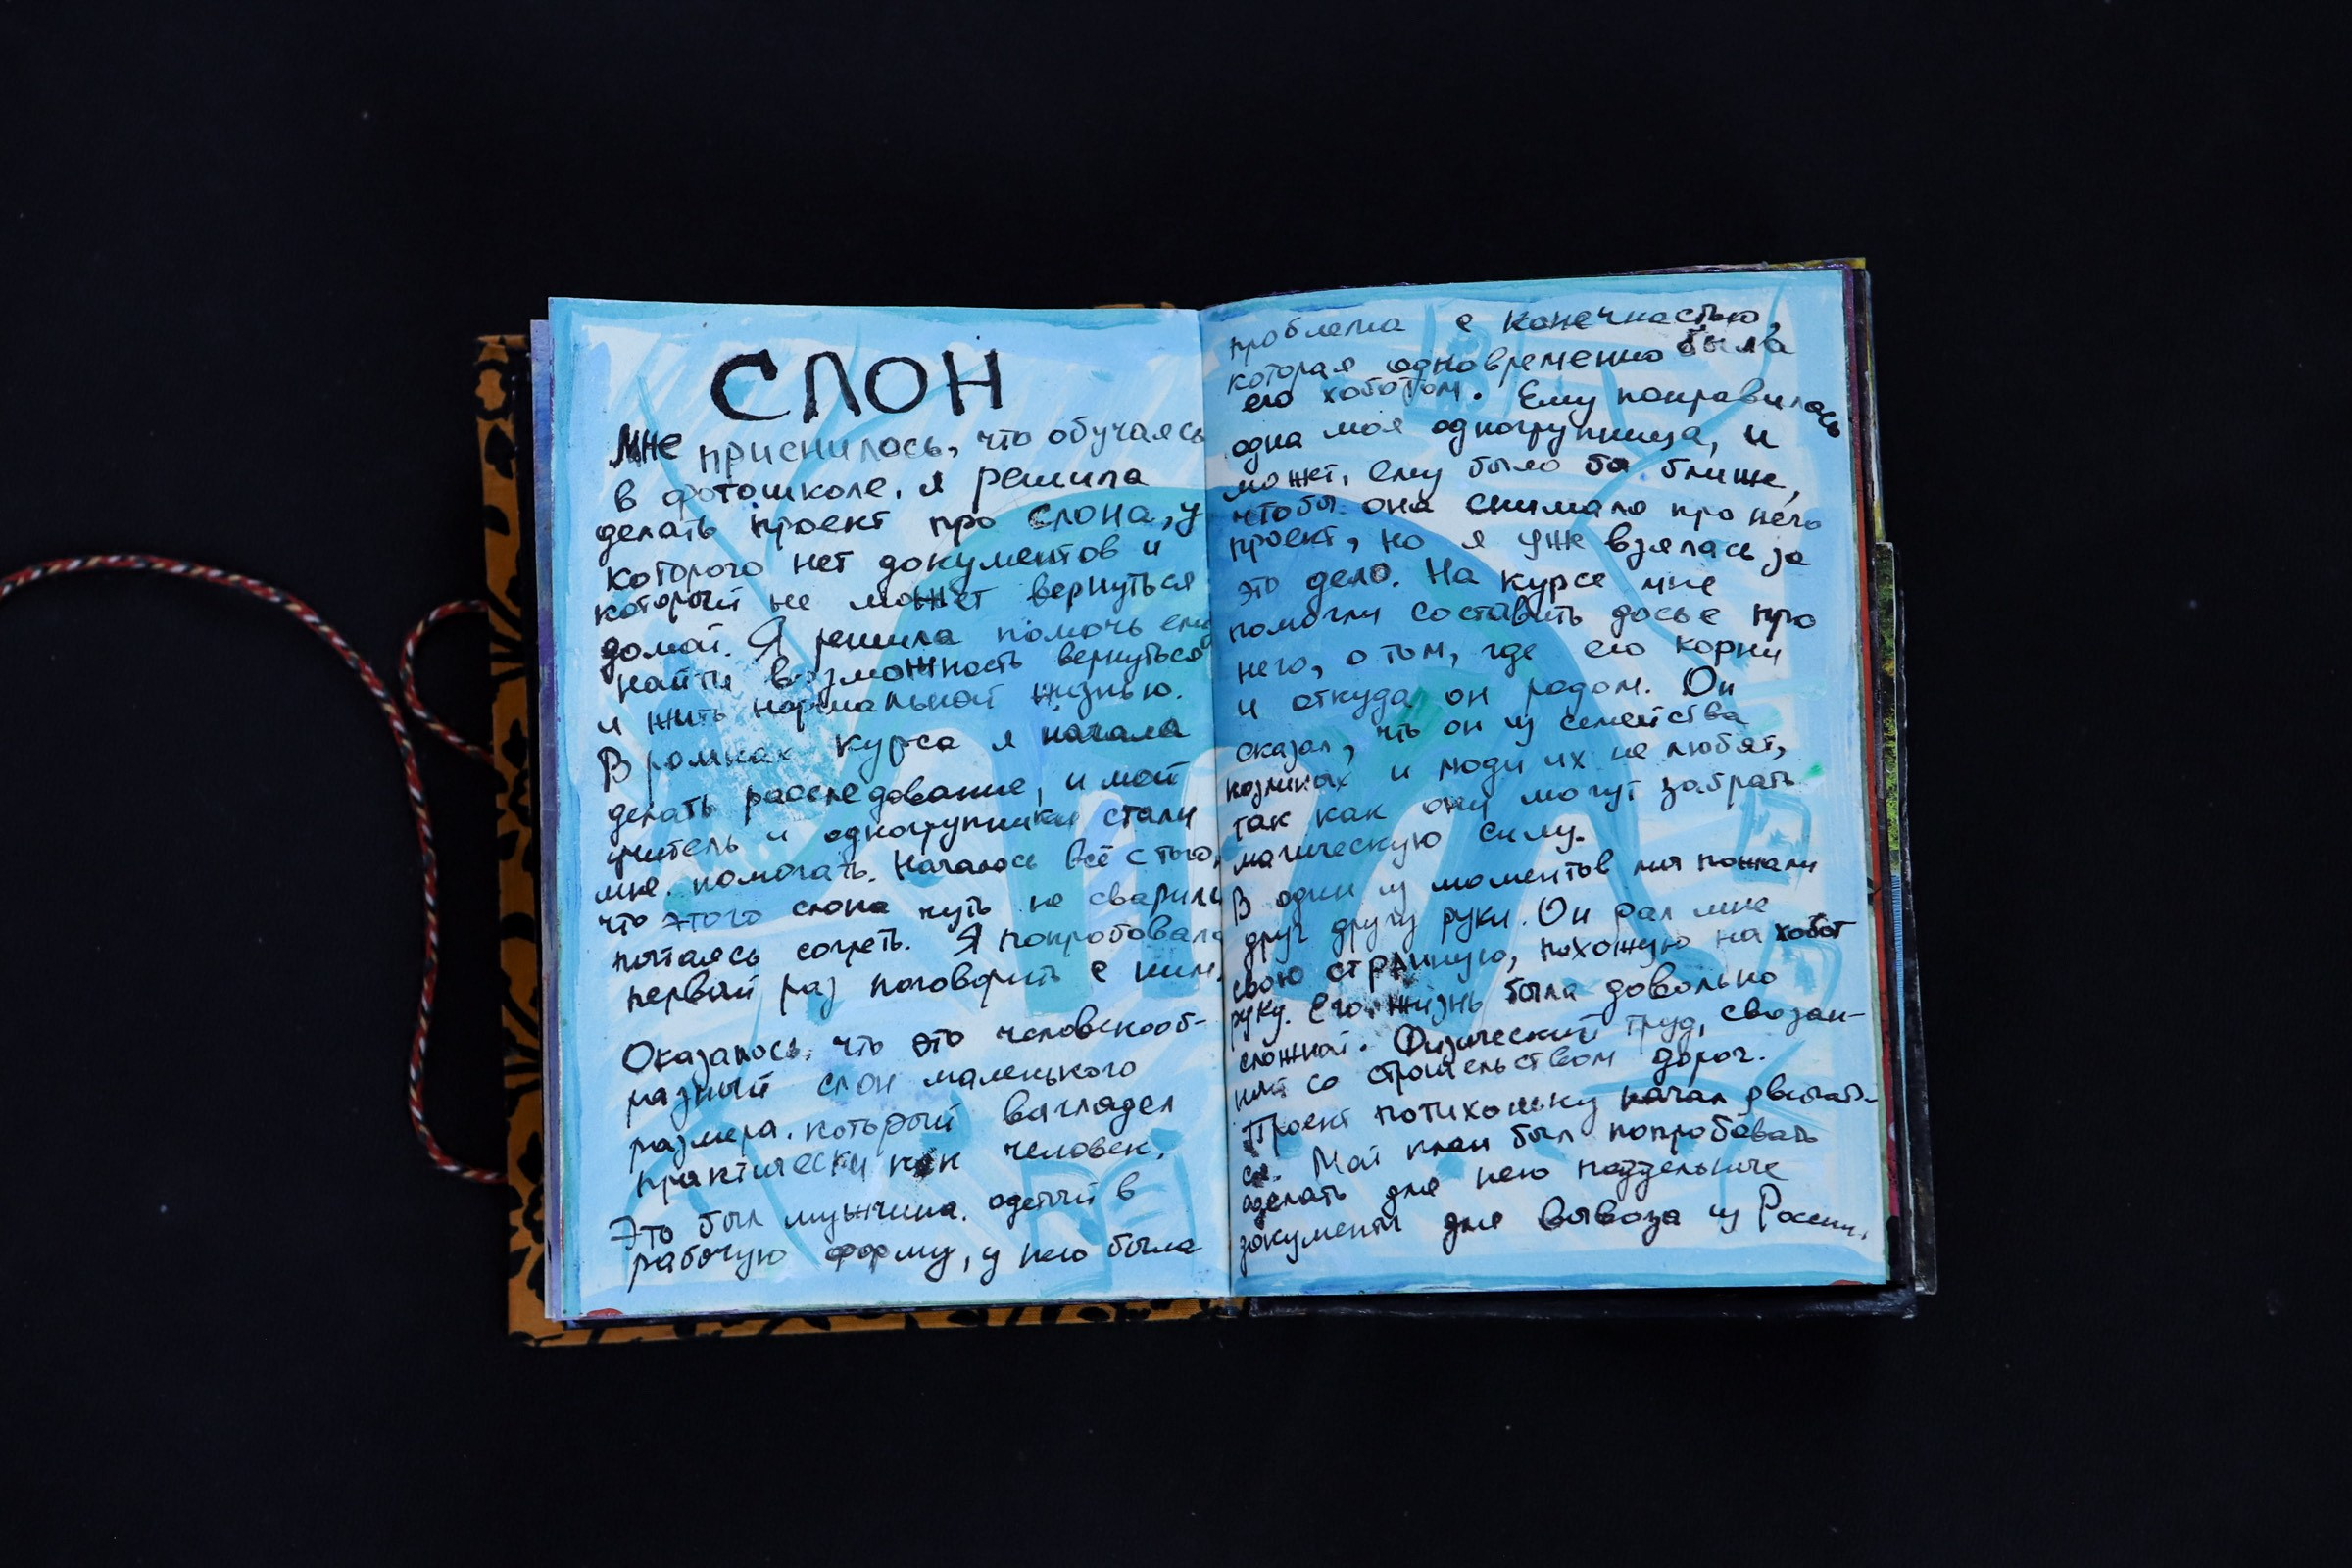 СЛОН
Мне приснилось, что обучаясь
в фотошколе, я решила
делать проект про слона, у
которого нет документов и
который не может вернуться
домой. Я решила помочь ему
найти возможность вернуться
и жить нормальной жизнью.
В рамках курса я начала
делать расследование, и мой
учитель и одногрупники стали
мне помогать. Началось всё с того,
что этого слона чуть не сварили
пытаясь согреть. Я попробовала
первый раз поговорить с ним.
Оказалось, что это человекооб-
разный слон маленького
размера, который выглядел
практически как человек.
Это был мужчина, одетый в
рабочую форму, у него была
проблема с конечностью,
которая одновременно была
его хоботом. Ему понравилась
одна моя одногрупница, и
может, ему было бы ближе,
чтобы она снимала про него
проект, но я уже взялась за
это дело. На курсе мне
помогли составить досье про
него, о том, где его корни
и откуда он родом. Он
сказал, что он из семейства
и люди их не любят,
так как они могут забрать
магическую силу.
В один из моментов мы пожали
друг другу руки. Он дал мне
свою странную, похожую на хобот
руку. Его жизнь была довольно
сложной. Физический труд, связан-
ный со строительством дорог.
Проект потихоньку начал двигать-
ся. Мой план был попробовать
сделать для него поддельные
документы для вывоза из России.